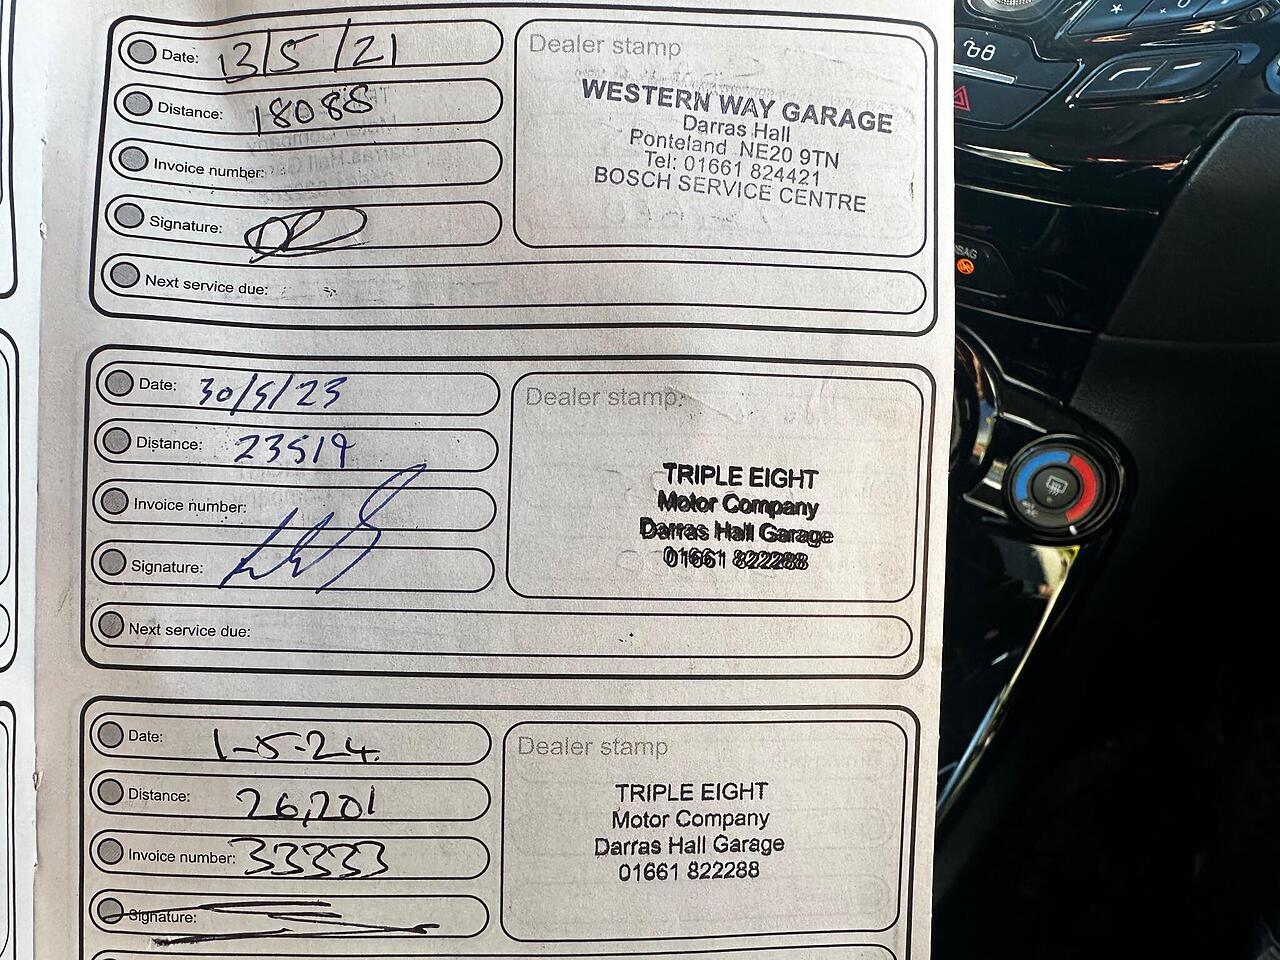 Date: 13/5/21
Distance: 18088
Invoice number:
Signature:
Next service due:
Dealer stamp
WESTERN WAY GARAGE
Darras Hall
Ponteland NE20 9TN
Tel: 01661 824421
BOSCH SERVICE CENTRE
Date: 30/5/23
Distance: 23519
Invoice number:
Signature:
Next service due:
Dealer stamp
TRIPLE EIGHT
Motor Company
Darras Hall Garage
01661 822288
Date: 1-5-24.
Distance: 26,201
Invoice number: 33333
Signature:
Dealer stamp
TRIPLE EIGHT
Motor Company
Darras Hall Garage
01661 822288